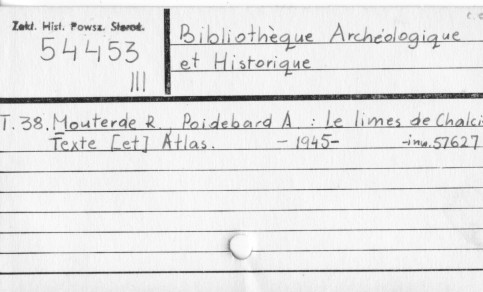 Zakł. Hist. Powsz. Staroż.
54453
III
Bibliothèque Archéologique
et Historique
T. 38. Mouterde R., Poidebard A. : Le limes de Chalcis
Texte [et] Atlas. - 1945- -inw. 57627